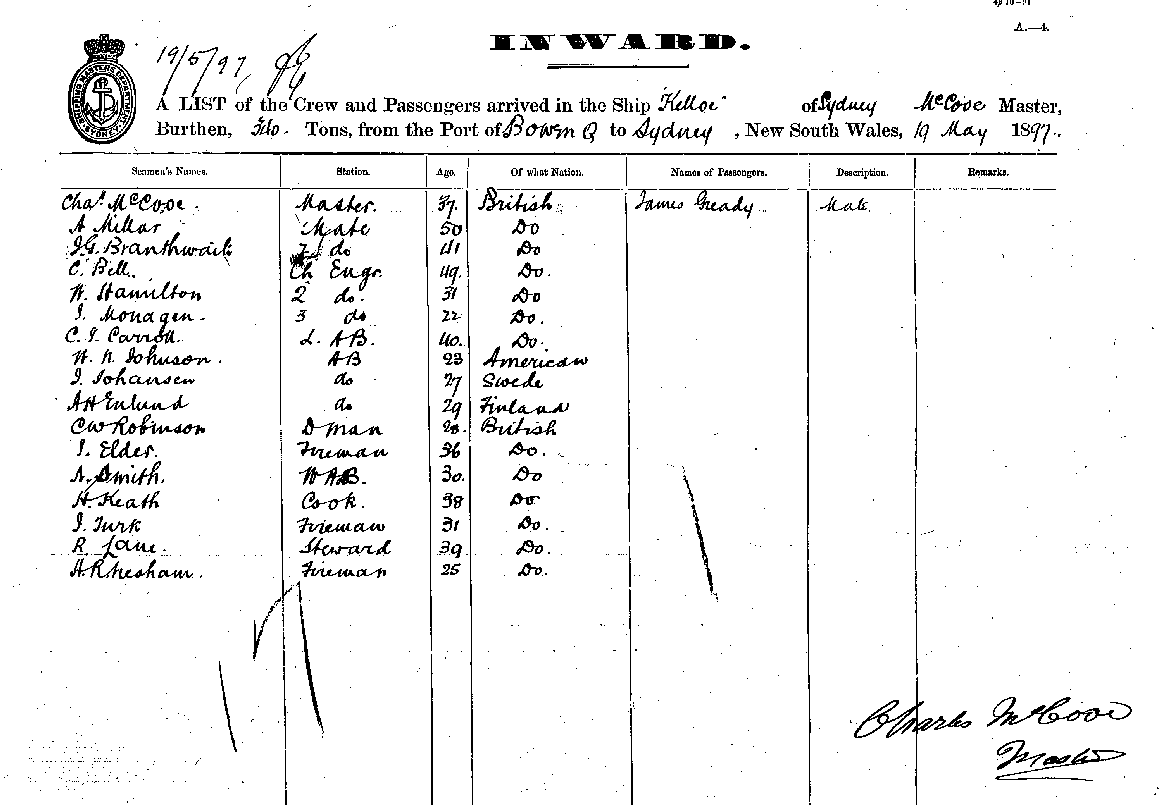 A.—4.
INWARD.
19/5/97
A LIST of the Crew and Passengers arrived in the Ship Kelloe of Sydney McCove Master,
Burthen, Tons, from the Port of Bowen Q to Sydney, New South Wales, 19 May 1897.
Seamen's Names. Station. Age. Of what Nation. Names of Passengers. Description. Remarks.
Chas McCove. Master. 37 British James Gready Male
A Millar Mate 50 Do
J.G. Branthwaite 2d do 41 Do
C. Bell. Ch Engr. 49 Do.
W. Hamilton 2 do. 31 Do
J. Monagen. 3 do 22 Do.
C. J. Carroll. L. AB. 40. Do.
W. N. Johnson. AB 23 American
J. Johansen do 27 Swede
AH Enlund do 29 Finland
CW Robinson D man British
J. Elder. Fireman 36 Do.
A. Smith. 30. Do
H. Keath Cook. 38 Do
J. Turk Fireman 31 Do.
R. Lane. Steward 39 Do.
A. Rhesham. Fireman 25 Do.
17 1
Charles McCove
Master